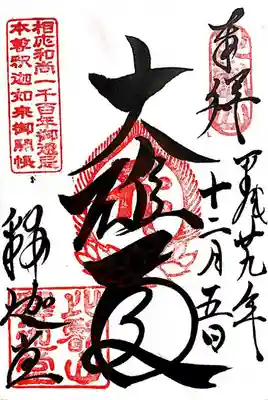 奉拝
平成廿九年
十二月五日
大雄殿
相応和尚一千百年御遠忌
本尊釈迦如来御開帳
釈迦堂